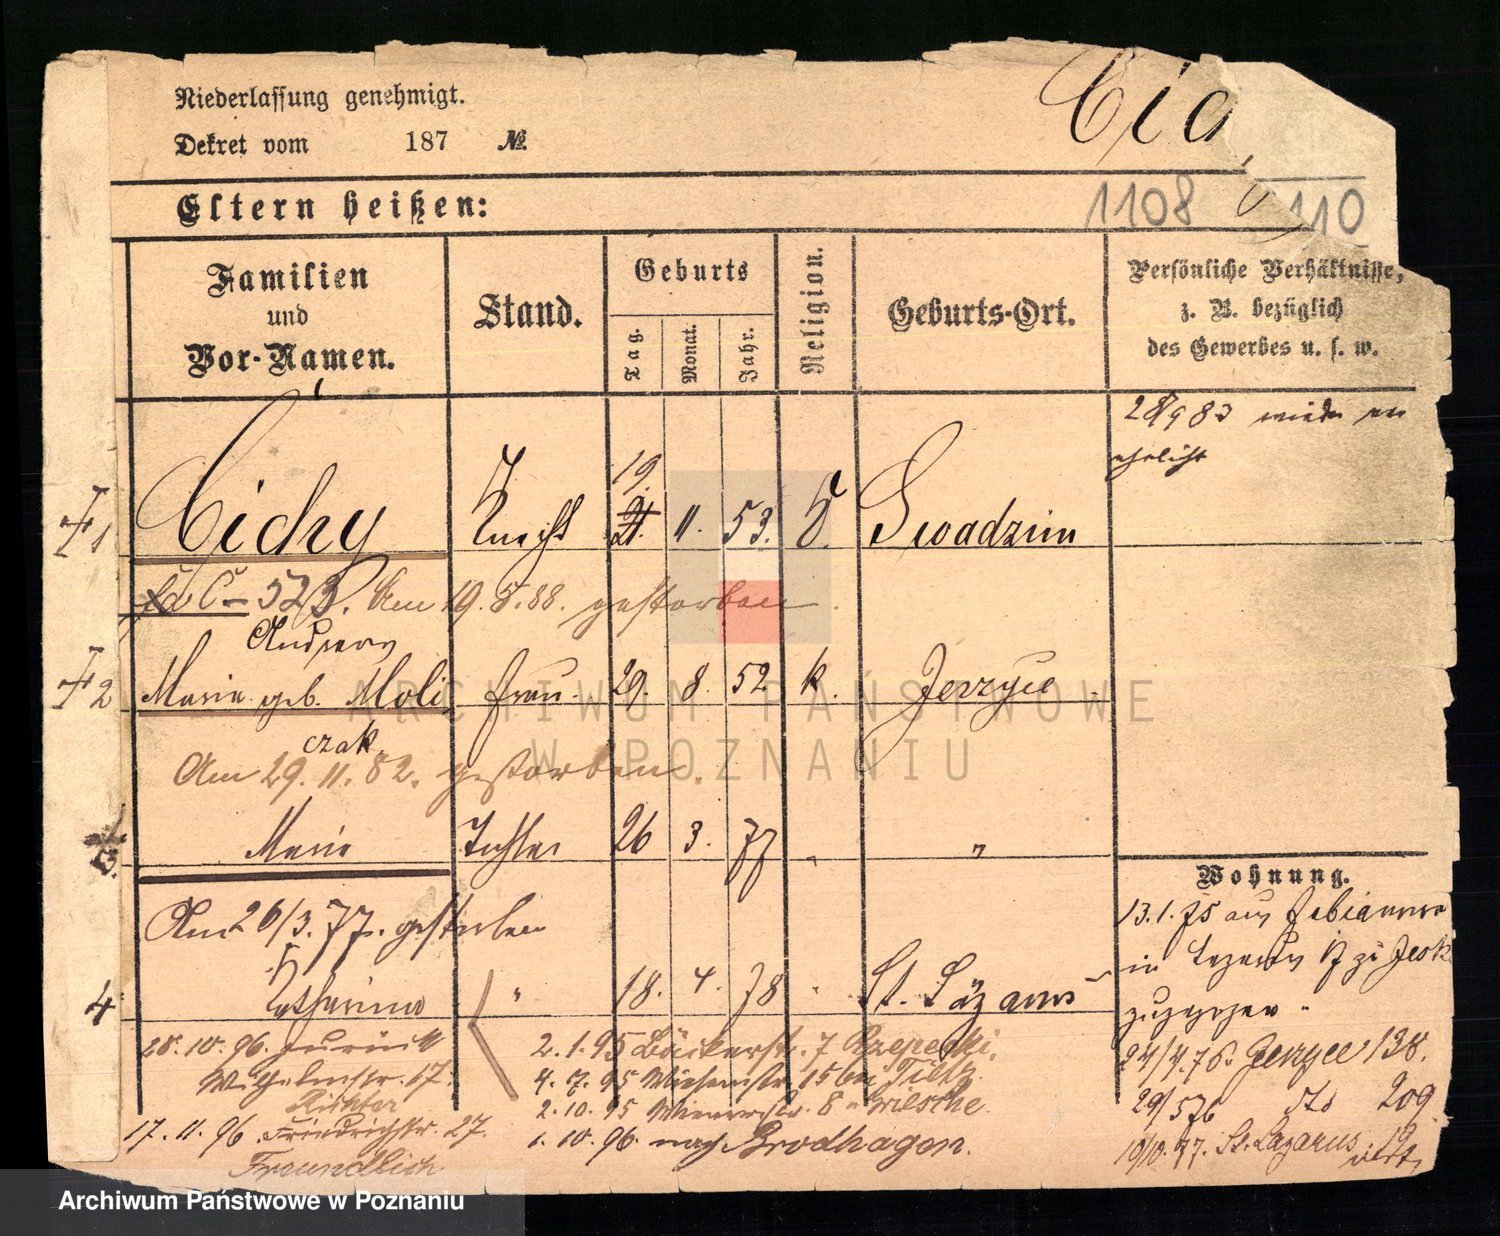 Niederlassung genehmigt.
Dekret vom 187 №.
Cic
Eltern heißen:
1108 110
Familien und Vor-Namen.
Stand.
Geburts
Tag. Monat. Jahr.
Religion.
Geburts-Ort.
Persönliche Verhältnisse, z. B. bezüglich des Gewerbes u. s. w.
28/9 83 wieder ver
ehelicht
19.
1 Cichy Knecht 21. 11. 53. k. Swadzim
Am 19. 5. 88. gestorben.
Andreas
2 Marie geb. Moli Frau. 29. 8. 52 k. Jerzyce
czak.
Am 29. 11. 82. gestorben.
3. Marie Tochter 26 3. 77 " "
Am 26/3. 77. gestorben
4 Katharina " 18. 4. 78 " St. Lazarus
Wohnung.
13.1.75 aus Fabianowo
in
zugezogen.
24/4.76. Jerzyce 138.
29/5 76 dto 209
10/10. 77. St. Lazarus 19
28. 10. 96. zurück
Wilhelmstr. 17.
Richter
17. 11. 96. Friedrichstr. 27.
Freundlich
2. 1. 95 Bäckerstr. 7 Rzepecki.
4. 7. 95 Wiesenstr. 15 bei
2. 10. 95 8 "
1. 10. 96. nach Brodhagen.
ARCHIWUM PAŃSTWOWE
W POZNANIU
Archiwum Państwowe w Poznaniu